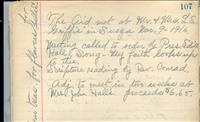 107
The Aid met at Mr. & Mrs. L.E.
Griffin in Dwega Nov. 9 - 1916
Meeting called to order by Pres. Eda
Hall. Song - My faith looks up to
thee
Scripture reading by Rev. Conrad.
Adj. to meet in two weeks at
Mrs. Hall's proceeds $6.65.
for flowers